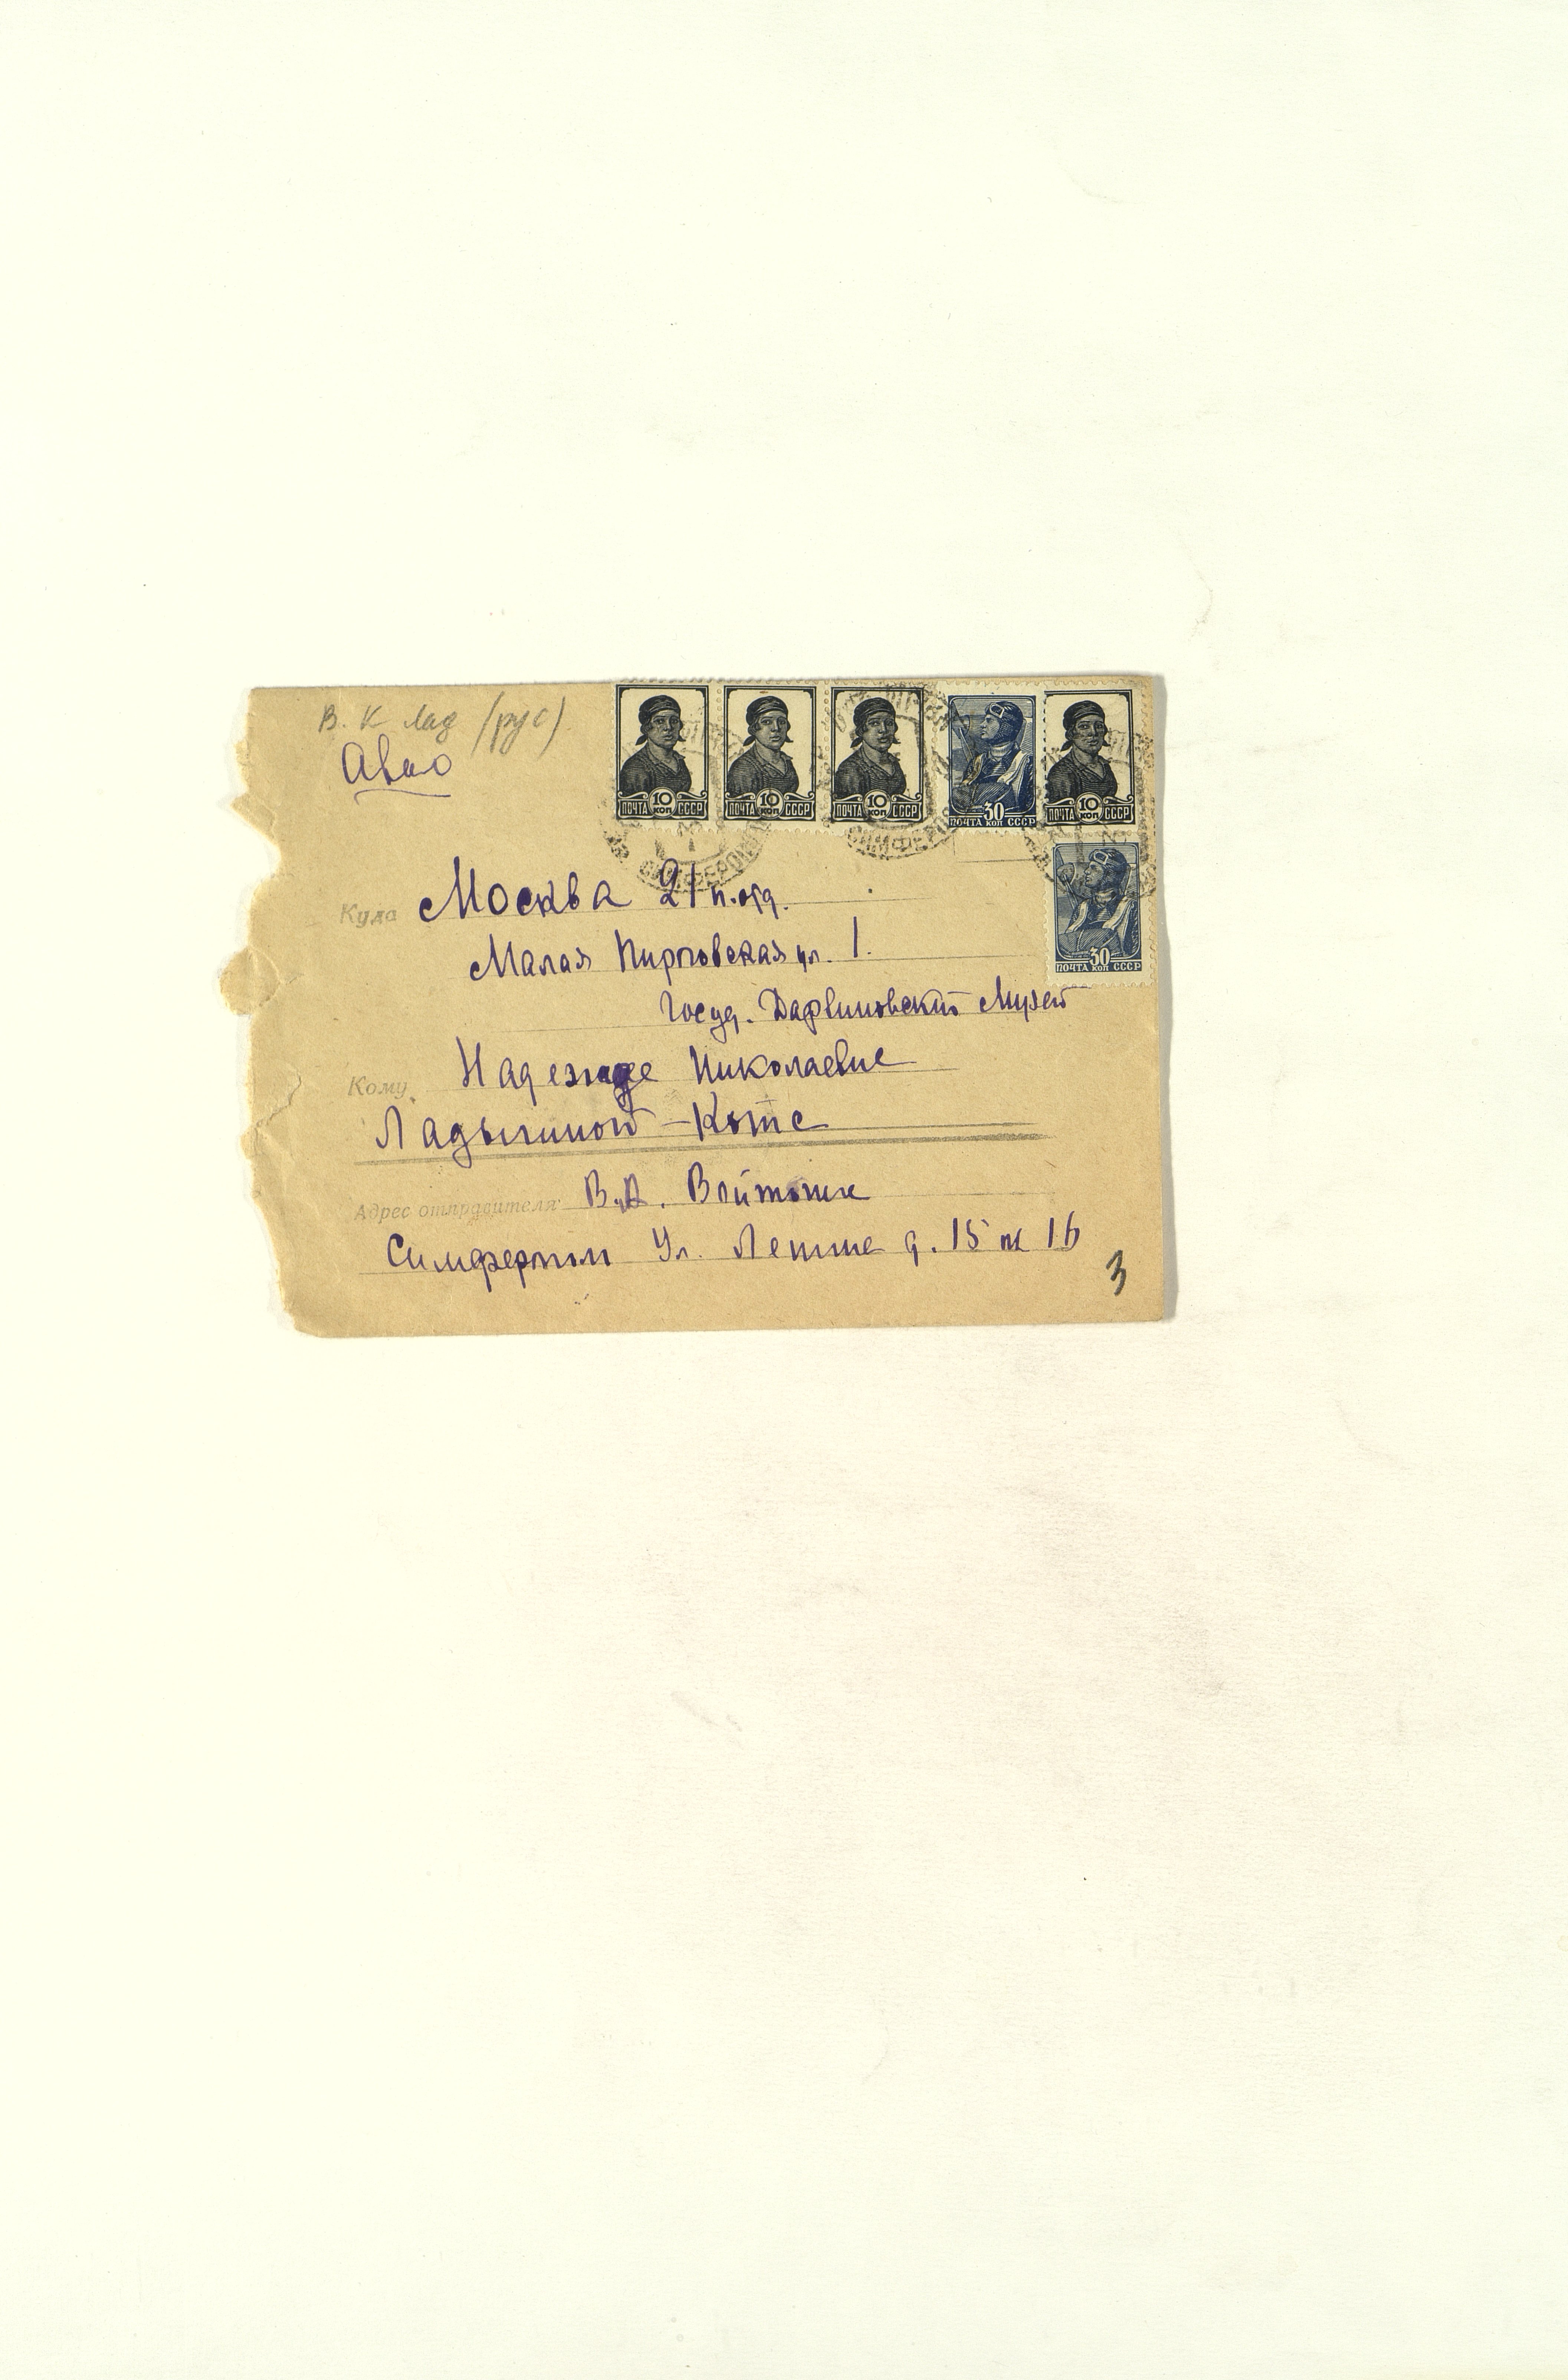 В. К Лад (рус)
Авио
ПОЧТА 10 КОП СССР
ПОЧТА 10 КОП СССР
ПОЧТА 10 КОП СССР
ПОЧТА 30 КОП СССР
ПОЧТА 10 КОП СССР
ПОЧТА 30 КОП СССР
СИМФЕРОПОЛЬ
Куда Москва 21 п.отд.
Малая Пироговская ул. 1.
Госуд. Дарвиновский Музей
Кому Надежде Николаевне
Ладыгиной-Котс
Адрес отправителя: В.А. Войтоник
Симферополь Ул. Ленина д. 15 кв 16
3